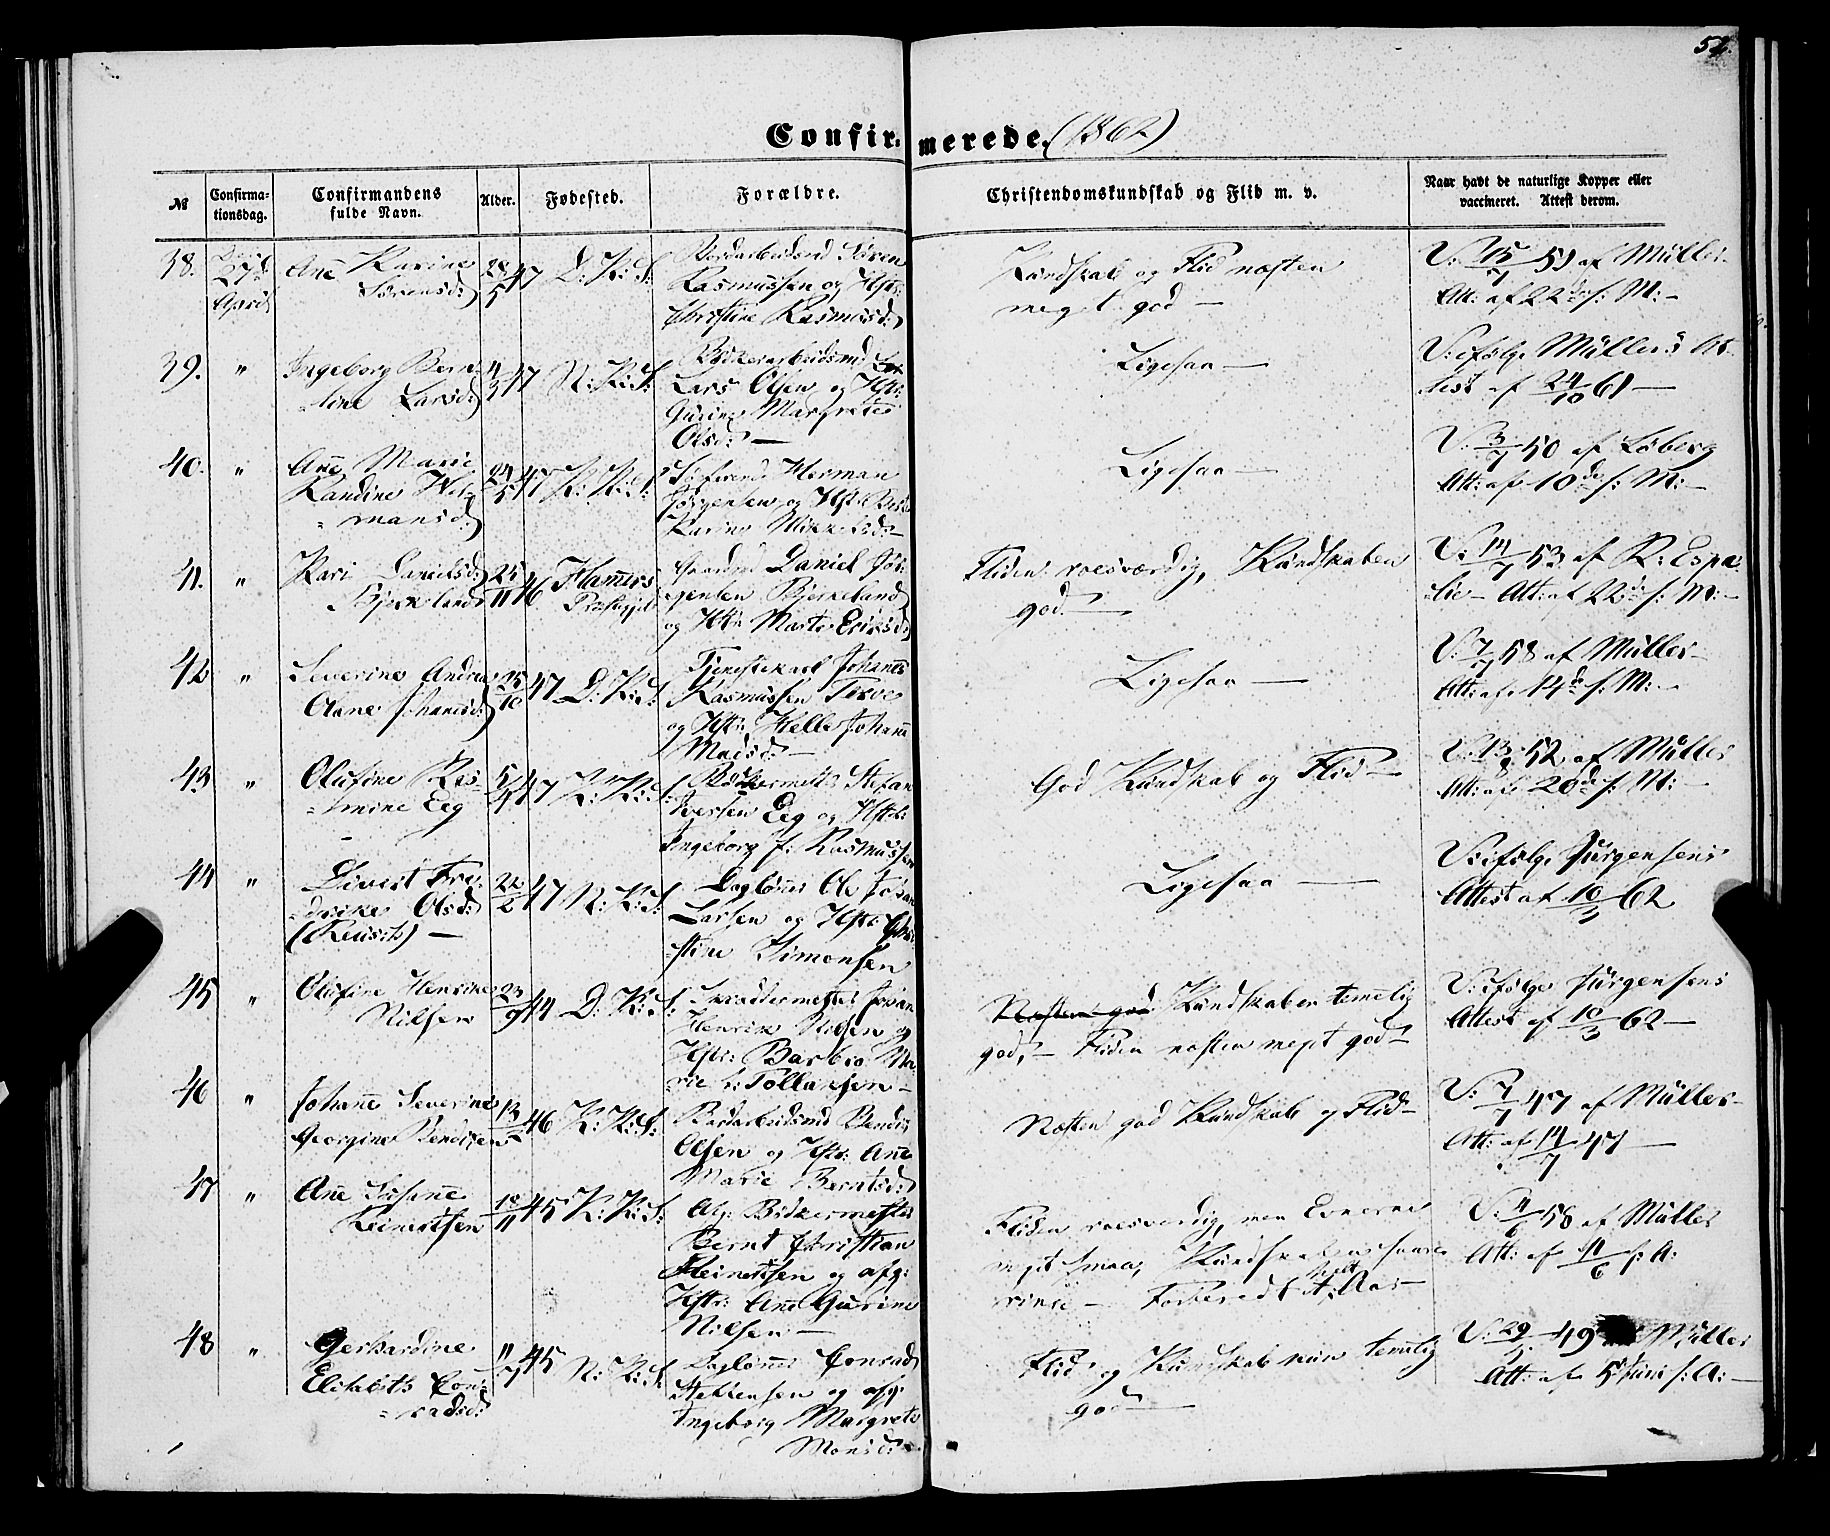 52.
Confirmerede. (1862)
№
Confirmationsdag.
Confirmandens fulde Navn.
Alder.
Fødested.
Forældre.
Christendomskundskab og Flid m. v.
Naar havt de naturlige Kopper eller vaccineret. Attest derom.
38. 27de April
Añe Karine
Sørensd:
28/5 47 D: K: S:
Søren
Rasmussen og Hstr:
Christine Rasmusd:
Kundskab og Flid næsten
meget god —
V: 15/7 51 af Müller
Att: af 22de s: M: —
39. "
Ingeborg Bern-
tine Larsd:
4/3 47 N: K: S:
Lars Olsen og Hstr:
Gurine Margrete
Olsd: —
Ligesaa —
V: ifølge Müllers At-
test af 24/10 61 —
40. "
Añe Marie
Randine Her-
mansd:
24/5 47 K: K: S:
Herman
Jørgensen og Hstr:
Karine Mikkelsd: —
Ligesaa —
V: 3/7 50 af Løberg
Att: af 10de s: M: —
41. "
Kari Danielsd:
Bjerkeland
25/11 46 Hamers
Præstegjeld
Gaardmd Daniel Jør-
gensen Bjerkeland
og Hstr Marte Eriksd:
Fliden roesværdig, Kundskaben
god. —
V: 14/7 53 af R: Espe-
lie — Att: af 22de s: M: —
42 "
Severine Andrea
Oline Johañesd:
25/10 47 D: K: S:
Tjenestekarl Johañes
Rasmussen Torve
og Hstr: Helle Johañe
Madsd: —
Ligesaa —
V: 7/7 58 af Müller —
Att: af 14de s: M: —
43 "
Olufine Ras-
mine Eeg
5/4 47 K: K: S:
Bødkermstr: Stefan
Iversen Eeg og Hstr:
Ingeborg f: Rasmussen
God Kundskab og Flid —
V: 13/8 52 af Müller
Att: af 20de s: M: —
44 "
Sivert Fre-
drikke Olsd:
(Reusch) —
22/2 47 N: K: S:
Dagløñer Ole Johan
Larsen og Hstr: Chri-
stine Simonsen
Ligesaa —
V: ifølge Jürgensens
Attest af 10/3 62
45 "
Olufine Henrikke
Nilsen
23/9 44 D: K: S:
Skræddermester Johan
Henrik Nilsen og
Hstr: Barbra Ma-
rie f: Tollansen —
Næsten god Kundskaben temelig
god, — Fliden næsten meget god —
V: ifølge Jürgensens
Attest af 10/3 62 —
46 "
Johañe Severine
Georgine Bendixen
46 K: K: S:
Bendix
Olsen og Hstr: Añe
Marie Berntsd:
Næsten god Kundskab og Flid —
V: 7/7 47 af Müller —
Att: af 14/7 47 —
47 "
Añe Susañe
Reinertsen
18/11 45 K: K: S:
Afg: Bødkermester
Bernt Christian
Reinertsen og afg:
Hstr: Añe Gurine
Nilsen —
Fliden roesværdig, men Evnerne
meget smaa, Kundskaben saare
ringe — Forberedt
V: 4/6 58 af Müller
Att: af 11/6 s: A:
48 "
Gerhardine
Elisabeth Con-
radsd:
11/7 45 N: K: S:
Dagløñer Conrad
Steffensen og afg:
Ingeborg Margrete
Monsd: —
Flid og Kundskab kun temelig
god —
V: 29/5 49 Müller
Att: af 5 Juni s: A: —